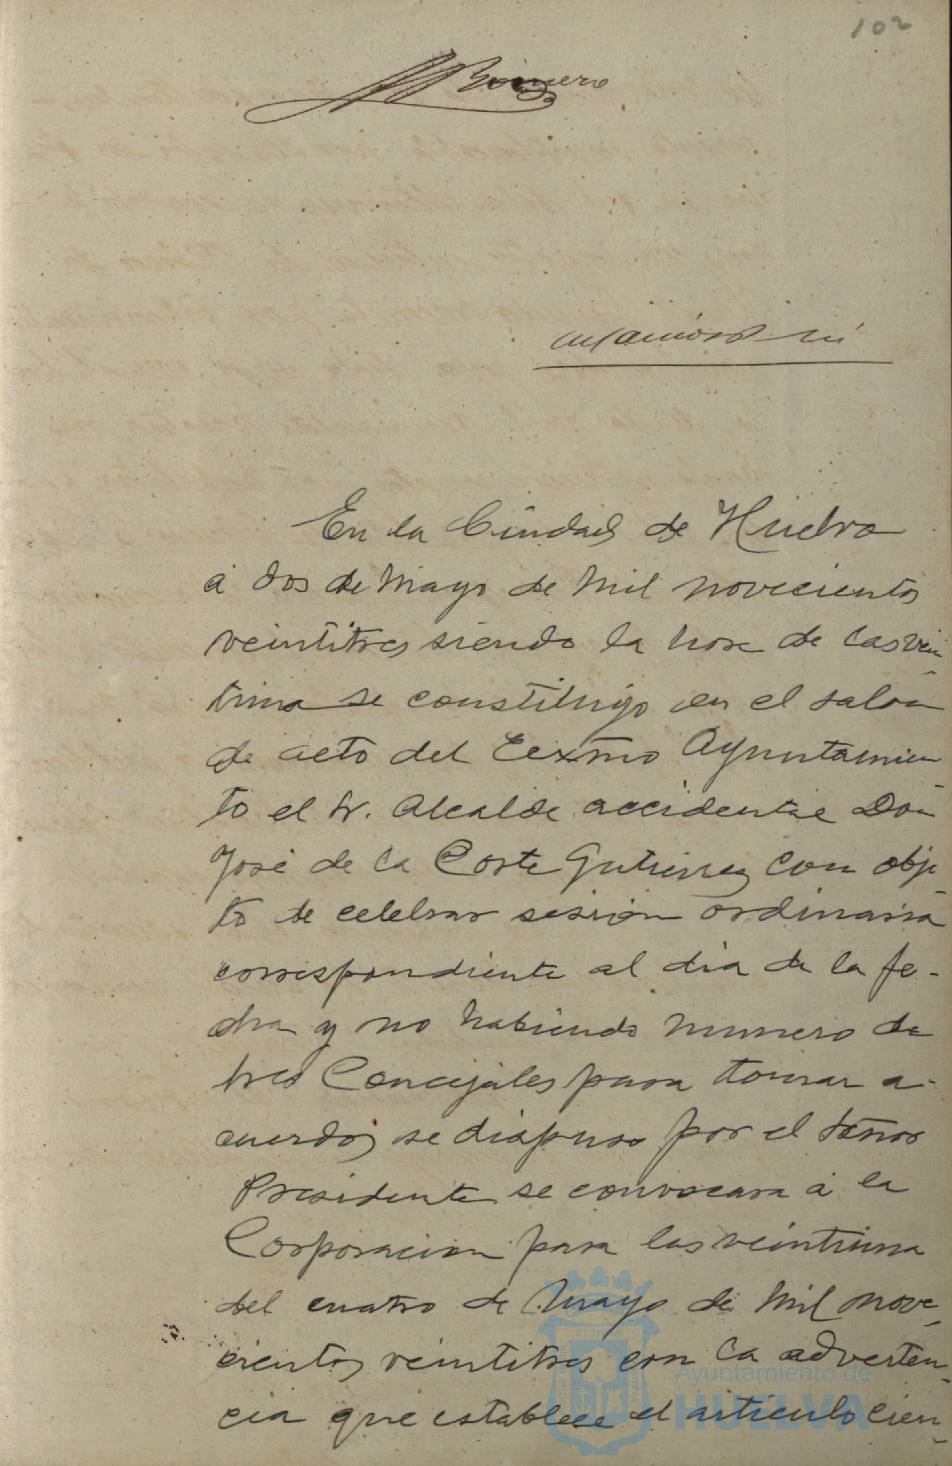 102
Romero
En la Ciudad de Huelva
á dos de Mayo de Mil novecientos
veintitres siendo la hora de las vein-
tiuna se constituyó en el salon
de acto del Excmo Ayuntamien-
to el Sr. Alcalde accidental Don
José de la Corte Gutierrez con obje-
to de celebrar sesion ordinaria
correspondiente al dia de la fe-
cha y no habiendo numero de
tres Concejales para tomar a-
cuerdos se dispuso por el Señor
Presidente se convocara á la
Corporacion para las veintiuna
del cuatro de Mayo de Mil nove-
cientos veintitres con la adverten-
cia que establece el articulo cien-
Ayuntamiento de
HUELVA